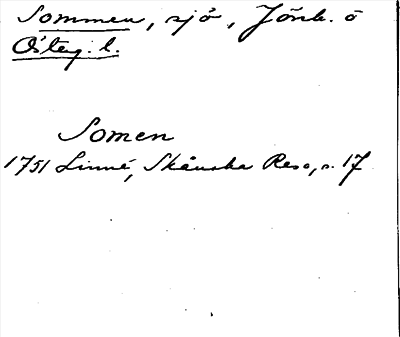 Sommen, sjö, Jönk. o
Österg. l.
Somen
1751 Linné, Skånska Resa, s. 17